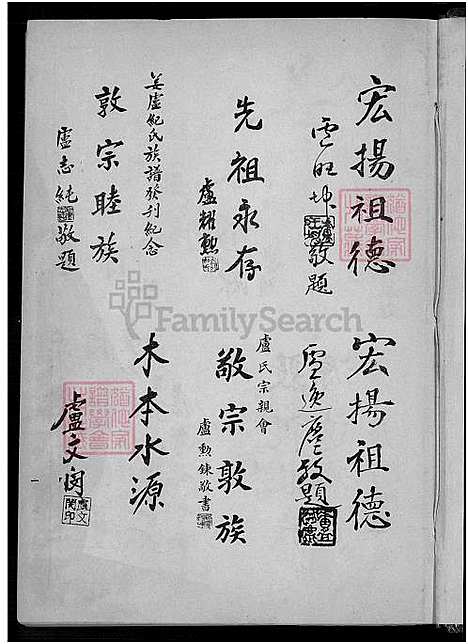 宏揚祖德
盧旺坤敬題
先祖永存
盧耀勲
姜盧紀氏族譜發刊紀念
敦宗睦族
盧志純敬題
宏揚祖德
盧逸麈敬題
盧氏宗親會
敬宗敦族
盧勲鍊敬書
木本水源
盧文閔
一
FamilySearch